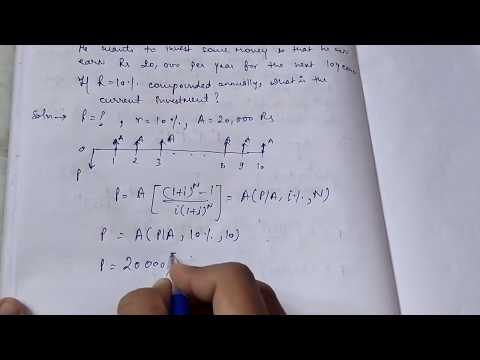 He wants to invest some money so that he can
earn Rs 20,000 per year for the next 10 years
If R=10% compounded annually, what is the
current investment?
Soln → P=?, r=10%, A=20,000 Rs
A A A A A A
0 1 2 3 8 9 10
P
P = A [ (1+i)^N - 1 / i(1+i)^N ] = A(P/A, i%, N)
P = A(P/A, 10%, 10)
P = 20000